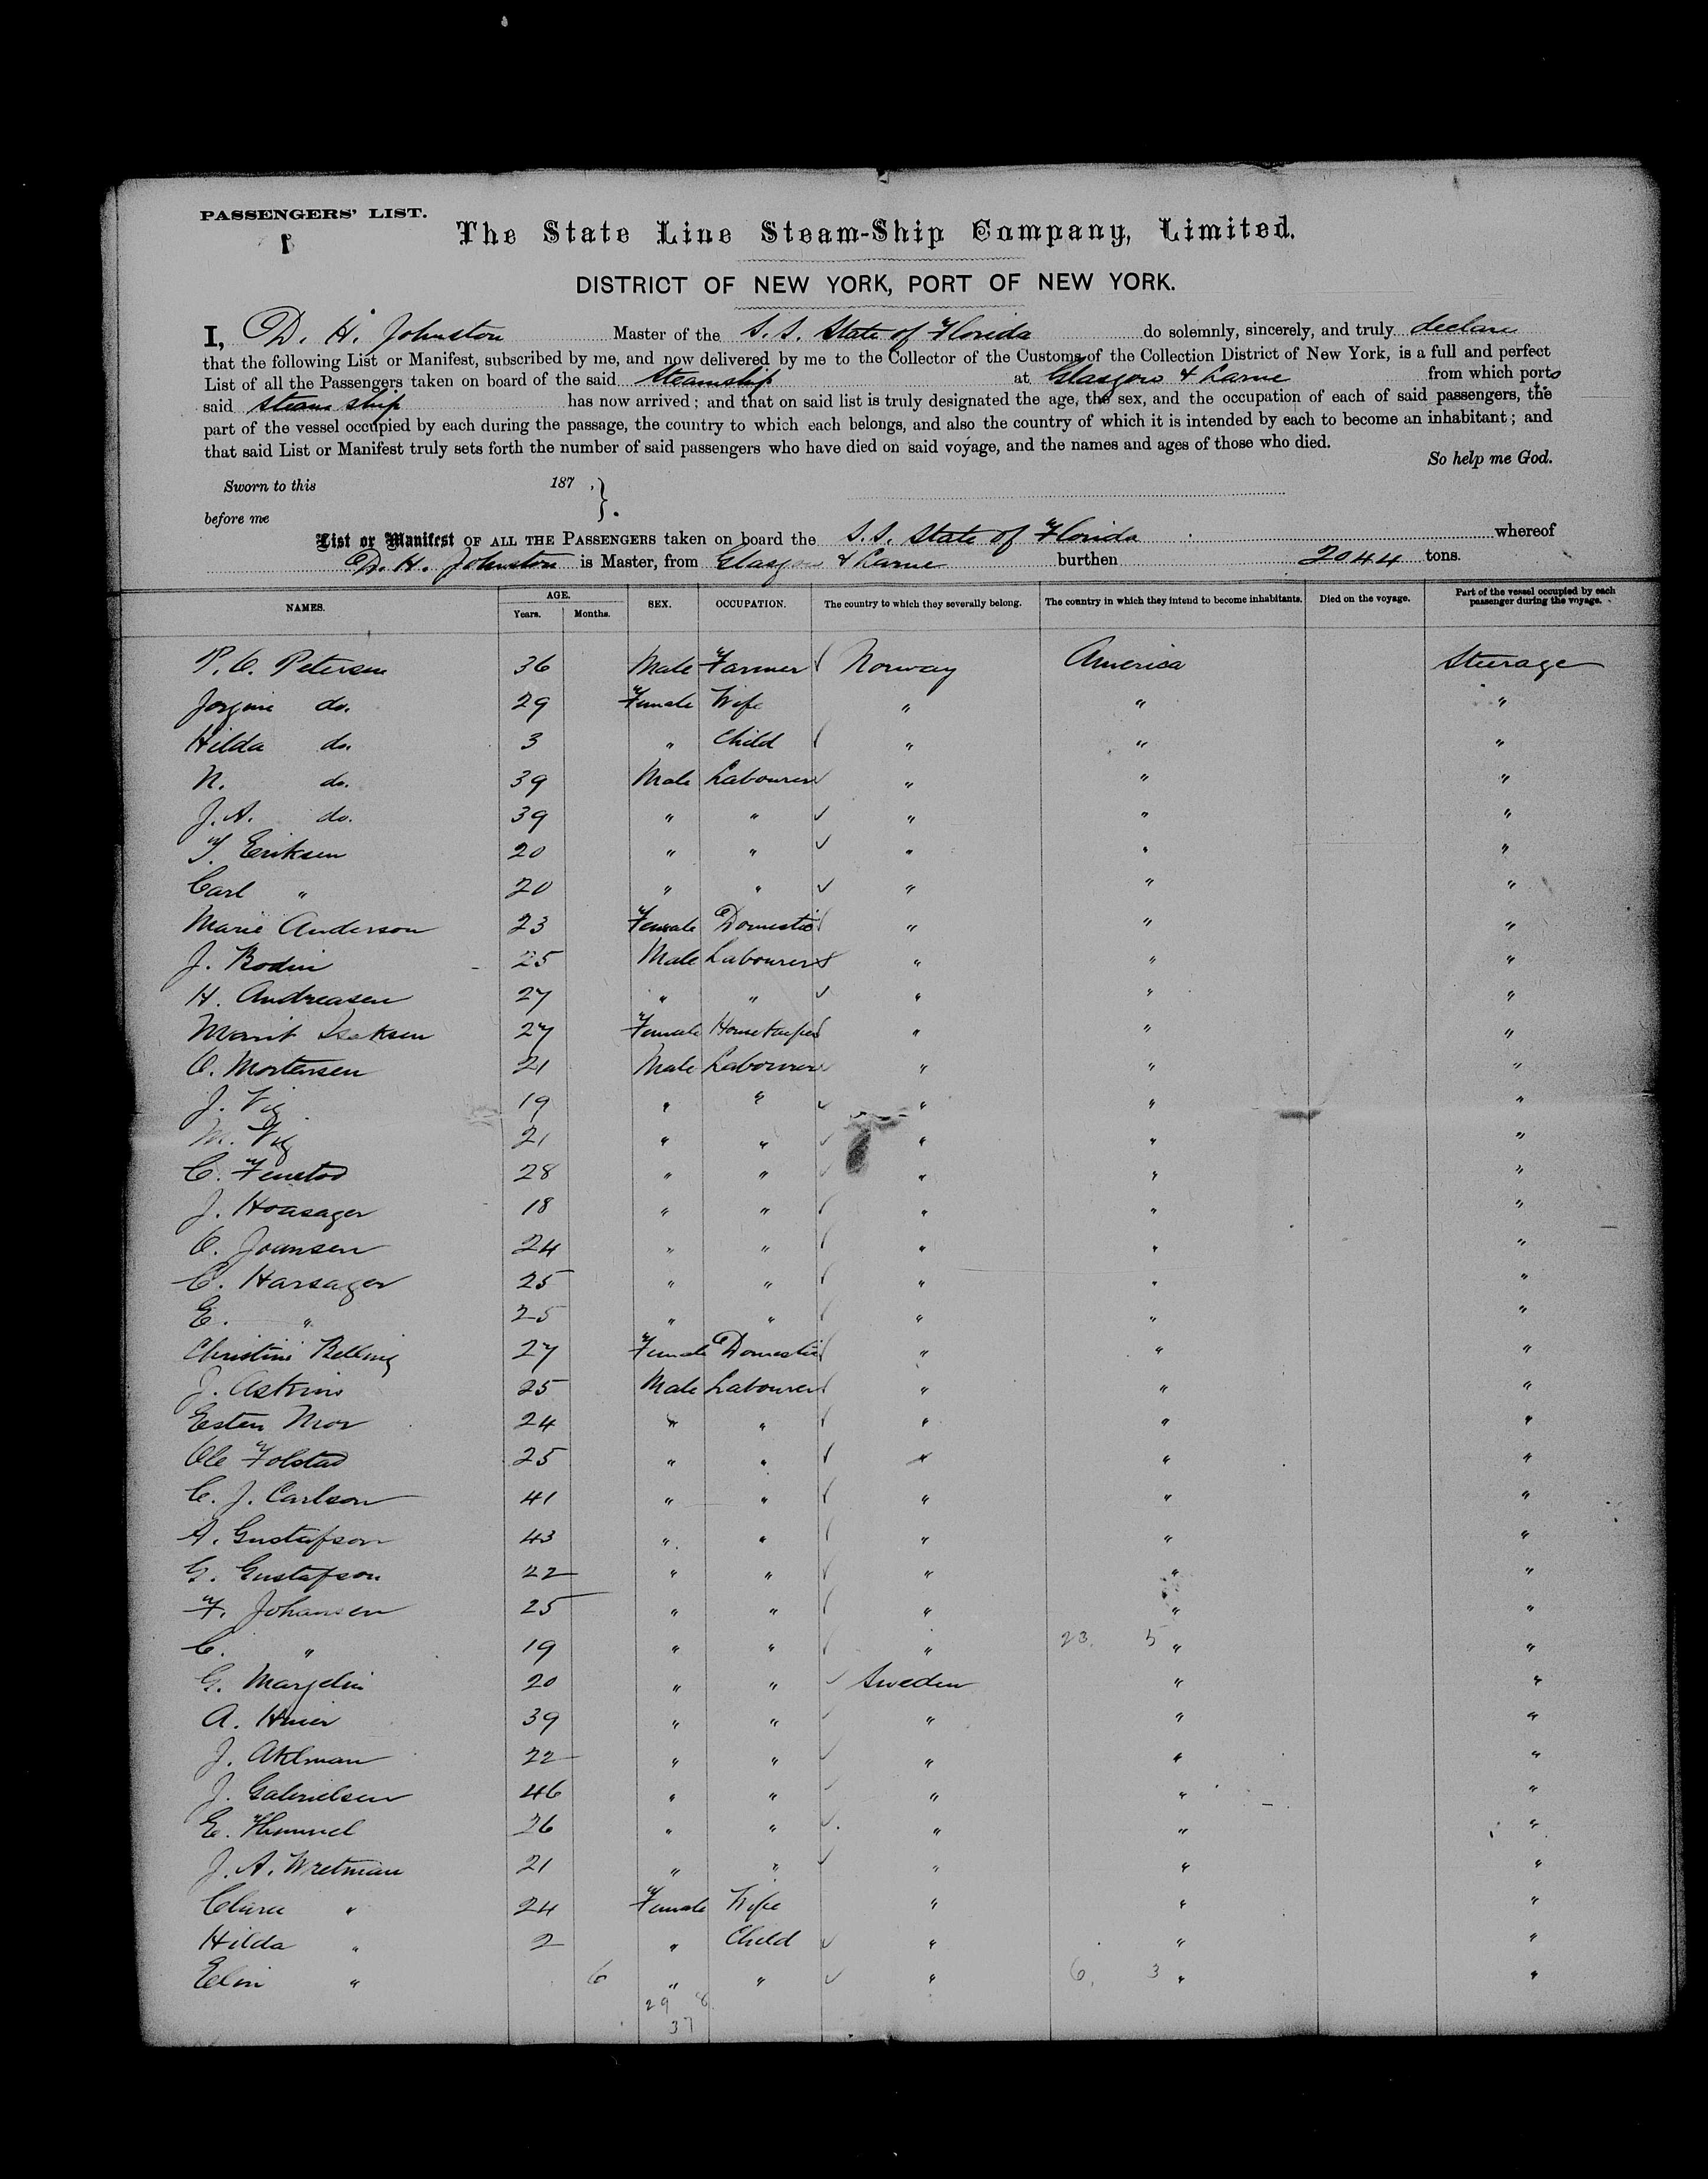 PASSENGERS' LIST.
1
The State Line Steam-Ship Company, Limited.
DISTRICT OF NEW YORK, PORT OF NEW YORK.
I, D. H. Johnston Master of the S. S. State of Florida do solemnly, sincerely, and truly declare
that the following List or Manifest, subscribed by me, and now delivered by me to the Collector of the Customs of the Collection District of New York, is a full and perfect
List of all the Passengers taken on board of the said Steamship at Glasgow & Larne from which ports
said Steam ship has now arrived; and that on said list is truly designated the age, the sex, and the occupation of each of said passengers, the
part of the vessel occupied by each during the passage, the country to which each belongs, and also the country of which it is intended by each to become an inhabitant; and
that said List or Manifest truly sets forth the number of said passengers who have died on said voyage, and the names and ages of those who died.
So help me God.
Sworn to this 187 .
before me
List or Manifest OF ALL THE PASSENGERS taken on board the S. S. State of Florida whereof
D. H. Johnston is Master, from Glasgow & Larne burthen 2044 tons.
NAMES. AGE. Years. Months. SEX. OCCUPATION. The country to which they severally belong. The country in which they intend to become inhabitants. Died on the voyage. Part of the vessel occupied by each passenger during the voyage.
P. O. Petersen 36 Male Farmer Norway America Steerage
Jorgine do. 29 Female Wife " " "
Hilda do. 3 " Child " " "
N. do. 39 Male Labourer " " "
J. A. do. 39 " " " " "
T. Eriksen 20 " " " " "
Carl " 20 " " " " "
Marie Anderson 23 Female Domestic " " "
J. Bodin 25 Male Labourer " " "
H. Andreasen 27 " " " " "
Marit Isaksen 27 Female Housekeeper " " "
O. Mortensen 21 Male Labourer " " "
J. Vig 19 " " " " "
M. Vig 21 " " " " "
C. 28 " " " " "
J. Hoasager 18 " " " " "
O. Joansen 24 " " " " "
C. Harsager 25 " " " " "
E. " 25 " " " " "
Christine Belling 27 Female Domestic " " "
J. 25 Male Labourer " " "
Esten Mor 24 " " " " "
Ole Folstad 25 " " " " "
C. J. Carlson 41 " " " " "
A. Gustafson 43 " " " " "
G. Gustafson 22 " " " " "
F. Johansen 25 " " " " "
C. " 19 " " " 23. 5 " "
G. 20 " " Sweden " "
A. 39 " " " " "
J. Ahlman 22 " " " " "
J. Gabrielsen 46 " " " " "
E. 26 " " " " "
J. A. Wretman 21 " " " " "
Clara " 24 Female Wife " " "
Hilda " 2 " Child " " "
Elin " 6 " " " 6. 3 " "
29 8
37